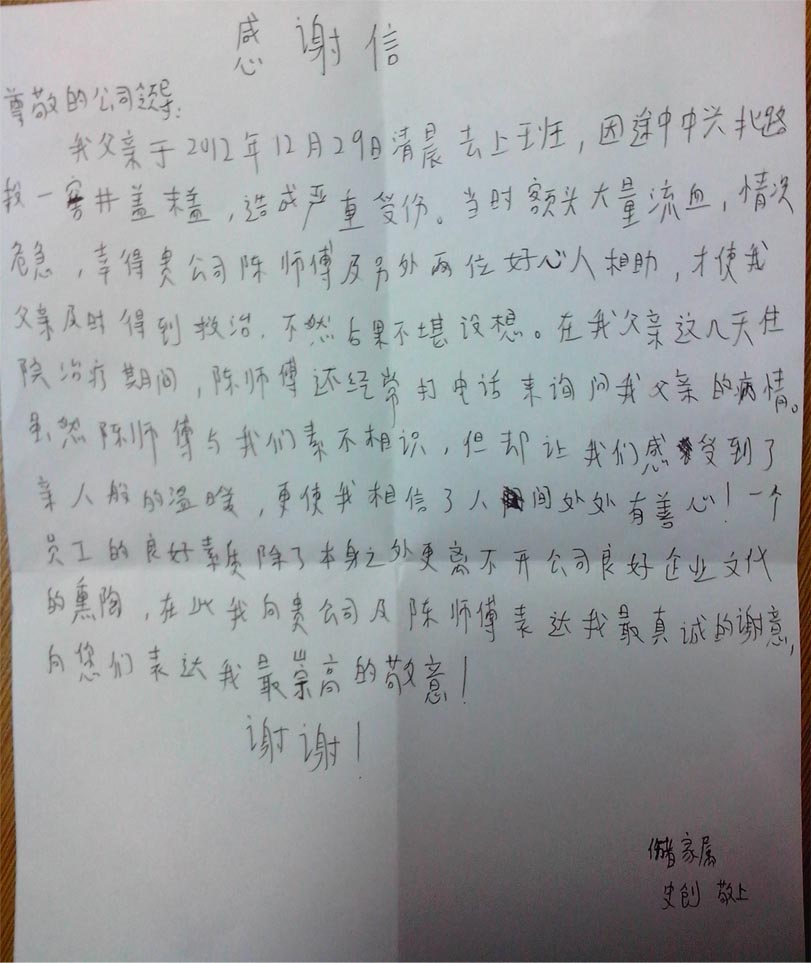 感谢信
尊敬的公司领导:
我父亲于2012年12月29日清晨去上班，因途中中兴北路
段一窨井盖未盖，造成严重受伤。当时额头大量流血，情况
危急，幸得贵公司陈师傅及另外两位好心人相助，才使我
父亲及时得到救治，不然后果不堪设想。在我父亲这几天住
院治疗期间，陈师傅还经常打电话来询问我父亲的病情。
虽然陈师傅与我们素不相识，但却让我们感受到了
亲人般的温暖，更使我相信了人间处处有善心！一个
员工的良好素质除了本身之外更离不开公司良好企业文化
的熏陶，在此我向贵公司及陈师傅表达我最真诚的谢意，
向您们表达我最崇高的敬意！
谢谢！
伤者家属
史创 敬上